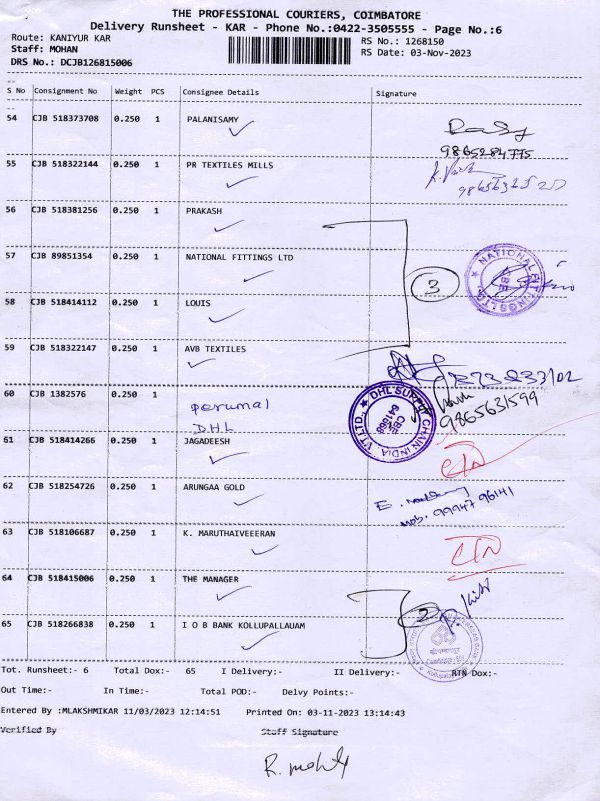 THE PROFESSIONAL COURIERS, COIMBATORE
Delivery Runsheet - KAR - Phone No.:0422-3505555 - Page No.:6
Route: KANIYUR KAR
RS No.: 1268150
Staff: MOHAN
RS Date: 03-Nov-2023
DRS No.: DCJB126815006
S No Consignment No Weight PCS Consignee Details Signature
54 CJB 518373708 0.250 1 PALANISAMY
9865284775
55 CJB 518322144 0.250 1 PR TEXTILES MILLS
56 CJB 518381256 0.250 1 PRAKASH
57 CJB 89851354 0.250 1 NATIONAL FITTINGS LTD
3
NATIONAL FITTINGS LTD. CBE
58 CJB 518414112 0.250 1 LOUIS
59 CJB 518322147 0.250 1 AVB TEXTILES
60 CJB 1382576 0.250 1 perumal
D.H.L
DHL SUPPLY CHAIN INDIA PVT LTD. CBE 641668
9865631599
61 CJB 518414266 0.250 1 JAGADEESH
62 CJB 518254726 0.250 1 ARUNGAA GOLD
Mob. 99947 96141
63 CJB 518106687 0.250 1 K. MARUTHAIVEEERAN
64 CJB 518415006 0.250 1 THE MANAGER
2
65 CJB 518266838 0.250 1 I O B BANK KOLLUPALLAUAM
Tot. Runsheet:- 6 Total Dox:- 65 I Delivery:- II Delivery:- RTN Dox:-
Out Time:- In Time:- Total POD:- Delvy Points:-
Entered By :MLAKSHMIKAR 11/03/2023 12:14:51 Printed On: 03-11-2023 13:14:43
Verified By Staff Signature